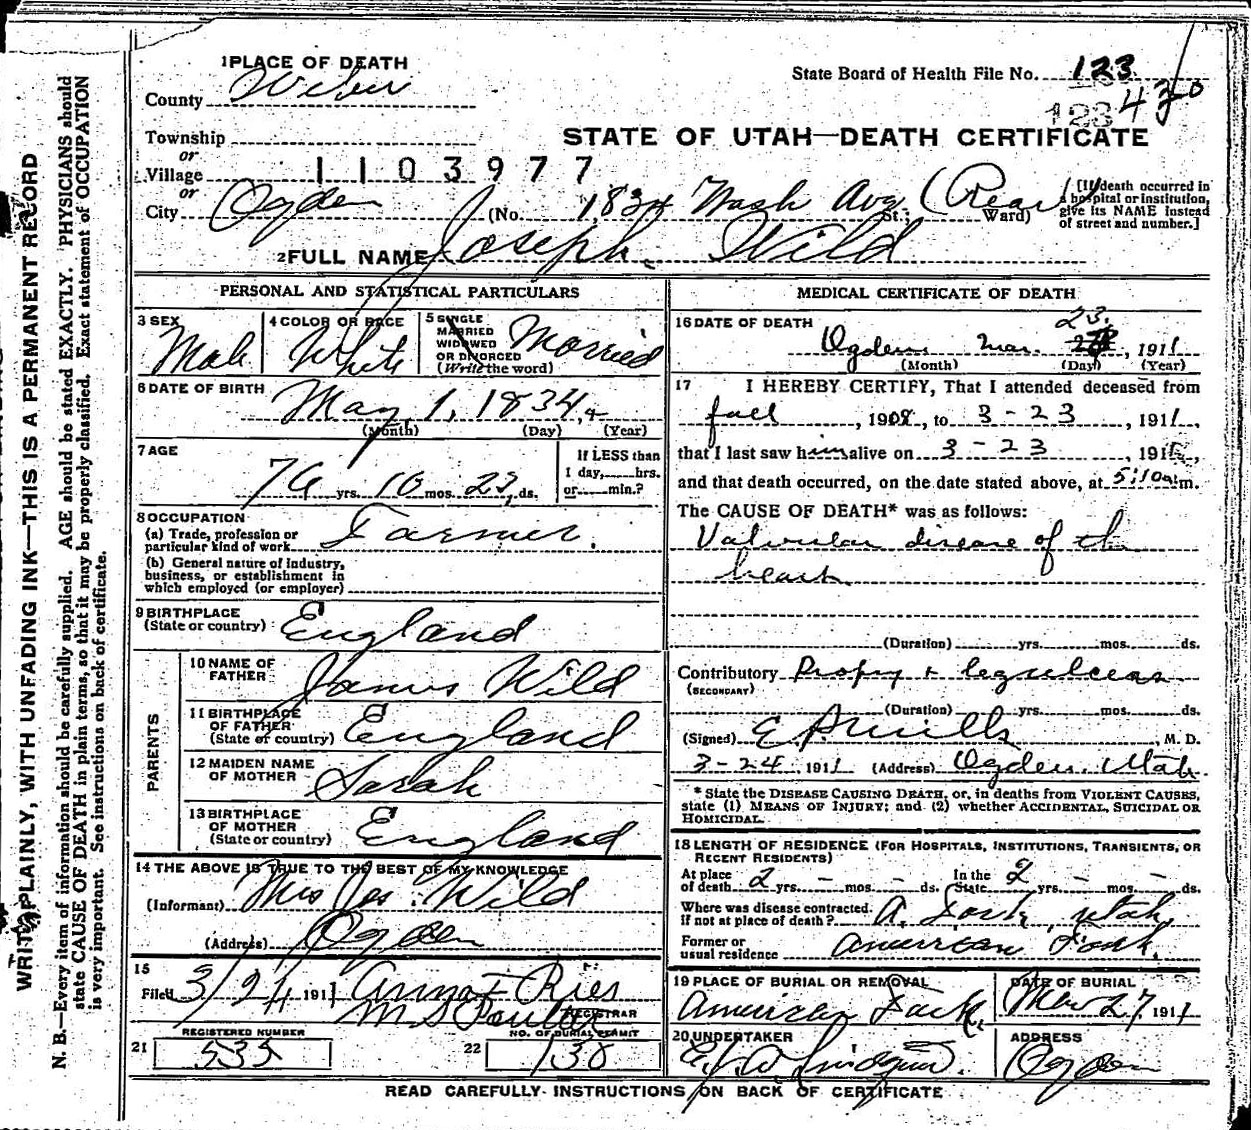 1 PLACE OF DEATH
County Weber
State Board of Health File No. 123
123 430
Township
or
Village
1103977
STATE OF UTAH—DEATH CERTIFICATE
or
City Ogden (No. 1834 Wash Ave St.; (Rear) Ward)
[If death occurred in
a hospital or institution,
give its NAME instead
of street and number.]
2 FULL NAME Joseph Wild
PERSONAL AND STATISTICAL PARTICULARS
3 SEX Male
4 COLOR OR RACE White
5 SINGLE
MARRIED
WIDOWED
OR DIVORCED
(Write the word) Married
6 DATE OF BIRTH May 1, 1834
(Month) (Day) (Year)
7 AGE
76 yrs. 10 mos. 22, ds.
If LESS than
1 day, hrs.
or min.?
8 OCCUPATION
(a) Trade, profession or
particular kind of work Farmer.
(b) General nature of industry,
business, or establishment in
which employed (or employer)
9 BIRTHPLACE
(State or country) England
PARENTS
10 NAME OF
FATHER James Wild
11 BIRTHPLACE
OF FATHER
(State or country) England
12 MAIDEN NAME
OF MOTHER Sarah
13 BIRTHPLACE
OF MOTHER
(State or country) England
14 THE ABOVE IS TRUE TO THE BEST OF MY KNOWLEDGE
(Informant) Mrs Jos. Wild
(Address) Ogden
15
Filed 3/24 1911 Anna F Ries
REGISTRAR
REGISTERED NUMBER
21 535
NO. OF BURIAL PERMIT
22 138
MEDICAL CERTIFICATE OF DEATH
16 DATE OF DEATH
23.
Ogden Mar , 1911
(Month) (Day) (Year)
17 I HEREBY CERTIFY, That I attended deceased from
fall , 1908, to 3-23 , 1911,
that I last saw him alive on 3-23 , 191
and that death occurred, on the date stated above, at 5:10 a m.
The CAUSE OF DEATH* was as follows:
Valvular disease of the
heart
(Duration) yrs. mos. ds.
Contributory Dropsy + leg ulcers
(SECONDARY)
(Duration) yrs. mos. ds.
(Signed) E. P. Mills M. D.
3-24, 1911 (Address) Ogden, Utah
* State the DISEASE CAUSING DEATH, or, in deaths from VIOLENT CAUSES,
state (1) MEANS OF INJURY; and (2) whether ACCIDENTAL, SUICIDAL OR
HOMICIDAL.
18 LENGTH OF RESIDENCE (FOR HOSPITALS, INSTITUTIONS, TRANSIENTS, OR
RECENT RESIDENTS)
At place
of death 2 yrs. - mos. - ds.
In the
State 2 yrs. - mos. - ds.
Where was disease contracted,
if not at place of death? A. Fork, Utah,
Former or
usual residence American Fork.
19 PLACE OF BURIAL OR REMOVAL
American Fork,
DATE OF BURIAL
Mar 27, 1911
20 UNDERTAKER
ADDRESS
Ogden
READ CAREFULLY INSTRUCTIONS ON BACK OF CERTIFICATE
WRITE PLAINLY, WITH UNFADING INK—THIS IS A PERMANENT RECORD
N. B.—Every item of information should be carefully supplied. AGE should be stated EXACTLY. PHYSICIANS should
state CAUSE OF DEATH in plain terms, so that it may be properly classified. Exact statement of OCCUPATION
is very important. See instructions on back of certificate.